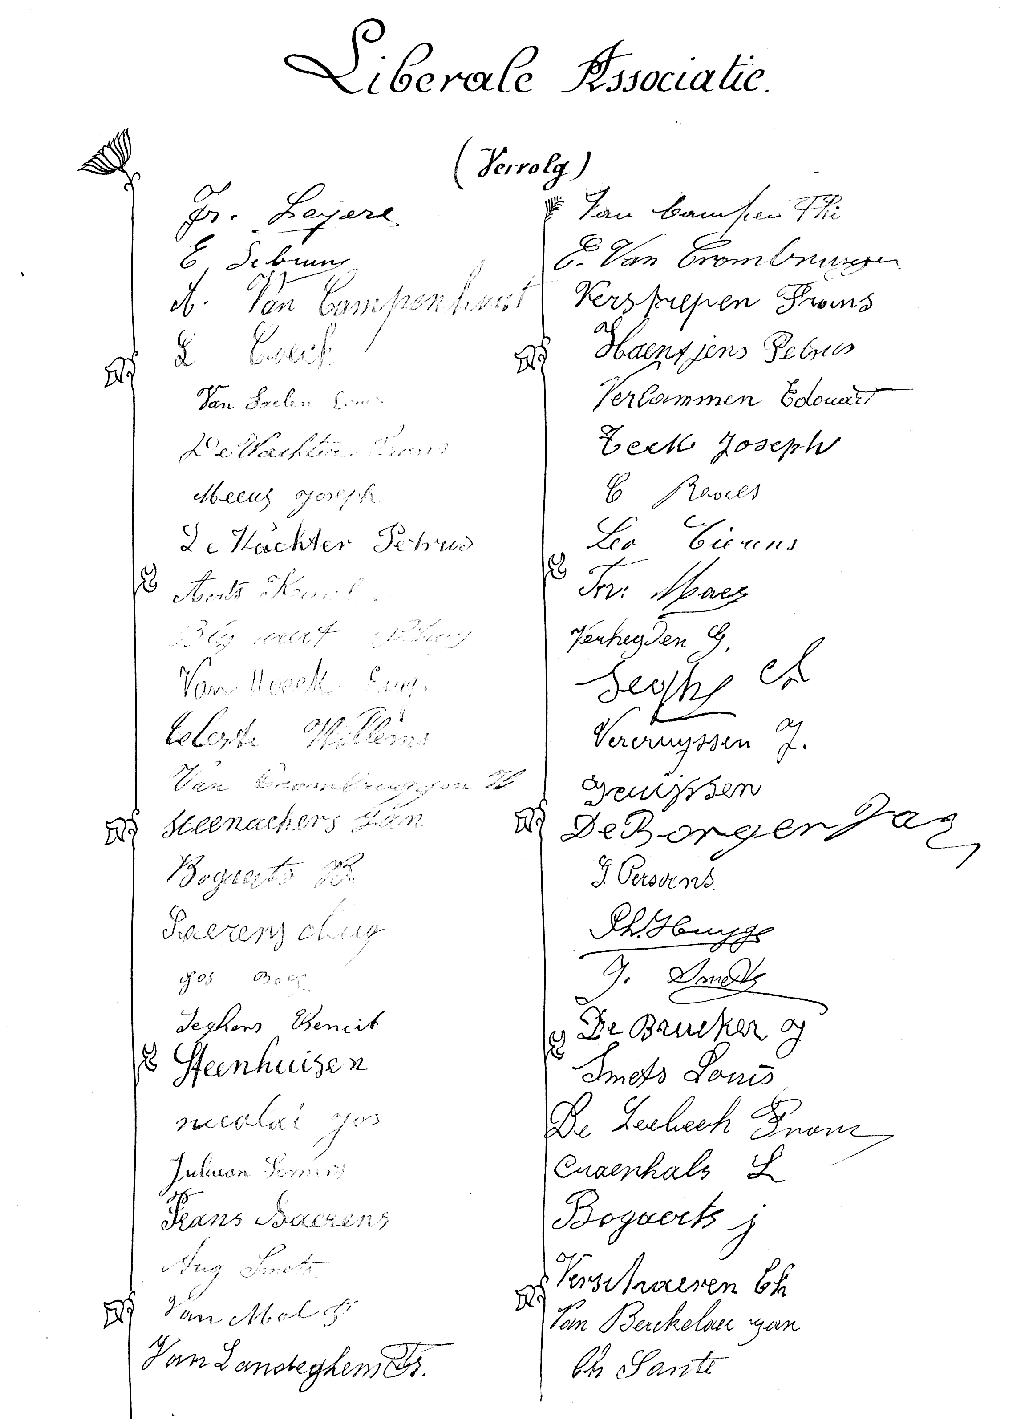 Liberale Associatie.
(Vervolg)
Fr. Layere
E. Debruny
A. Van Campenhout
L Coeck
Van Loelen Louis
De Wachter Frans
Meeus Joseph
De Wachter Petrus
Aerts Karel
Van Hoeck Eug.
Celeste Willems
Van Crombruggen H
Steenackers Jan
Bogaerts B
Saerens Aug
Jos
Seghers Benoit
Steenhuisen
nicolai jos
Juliaan Somers
Frans Saerens
Aug Smets
Van Mol Fr
Van Landeghem Fr.
Van Campen Th
E. Van Crombruggen
Verstrepen Frans
Haentjens Petrus
Verlammen Edouart
Teck Joseph
C Raoles
Leo Cierens
Fr: Maes
Verheyden G.
Seghs Ch
Vercruyssen J.
Gruijssen
De Borger Jaq
J Persoens
Ph. Huygge
J. Smets
De Brucker J
Smets Louis
De Leebeeck Frans
Craenhals L
Bogaerts j
Verschaeren Ch
Van Berckelaer jan
Ch Sante